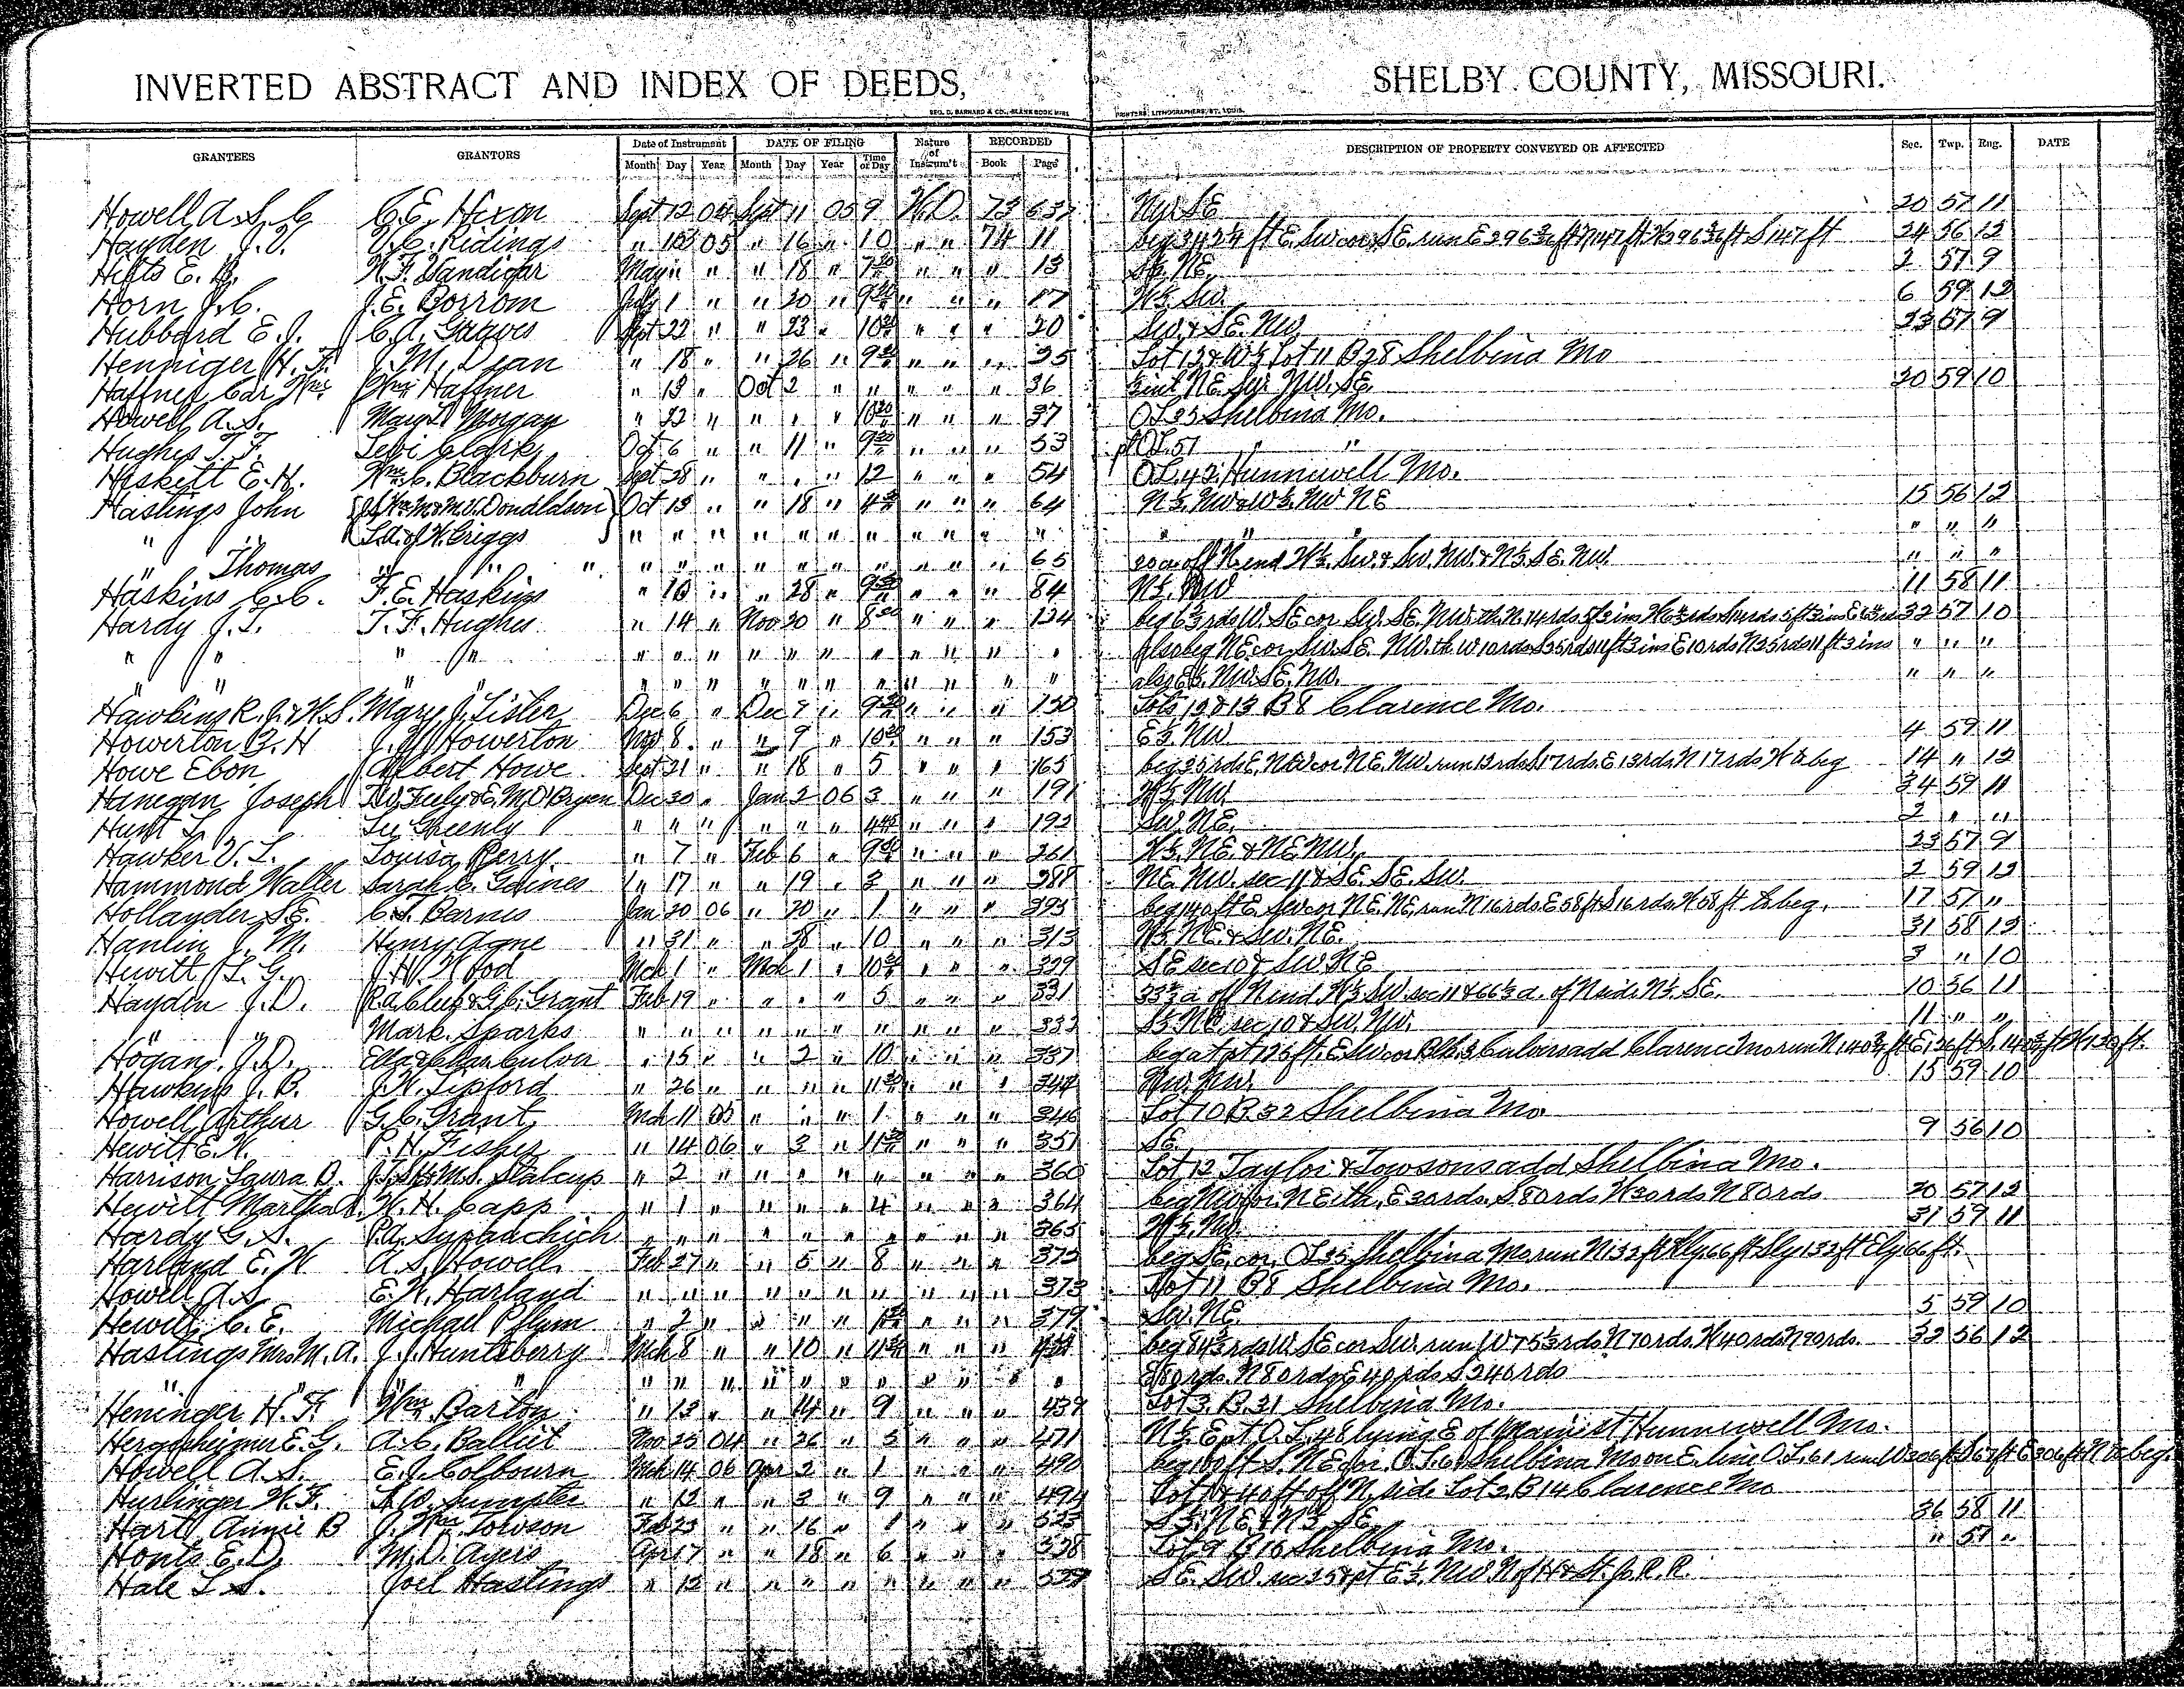 INVERTED ABSTRACT AND INDEX OF DEEDS, SHELBY COUNTY, MISSOURI.
GEO. D. BARNARD & CO., BLANK BOOK MFRS PRINTERS, LITHOGRAPHERS, ST. LOUIS.
GRANTEES GRANTORS Date of Instrument DATE OF FILING Nature of Instrum't RECORDED DESCRIPTION OF PROPERTY CONVEYED OR AFFECTED Sec. Twp. Rng. DATE
Month Day Year Month Day Year Time of Day Book Page
Howell A. S. C. C. E. Hixon Sept 12 04 Sept 11 05 9 W.D. 73 637 NW SE 20 57 11
Hayden J. D. Ridings " 05 " 16 " 10 " " 74 11 beg ft E. SW cor SE. run E 296 ft N 147 ft W 296 ft S 147 ft 24 56 12
Hilts E. B. Vandiver May " " 18 " 7 30 " " " 13 S½ NE. 2 57 9
Horn J. C. J. E. Borrom July 1 " " 20 " 9 " " " 17 W½ SW. 6 59 12
Hubbard E. J. C. A. Graves Sept 22 " " 23 " 10 " " " 20 SW. & SE. NW. 23 57 9
Henniger H. F. J. M. Dean " 18 " " 26 " 9 " " " 25 Lot 12 & W½ Lot 11 B 28 Shelbina Mo
Haffner Car Wm. Wm Haffner " 13 " Oct 2 " " " " " 36 int NE. NW. SE. 20 59 10
Howell A. S. Mary L. Morgan " 22 " " " " 10 30 " " " 37 OL 35 Shelbina Mo.
Hughes T. F. Levi Clark Oct 6 " " 11 " 9 30 " " " 53 pt OL. 51 " "
Haskett E. H. Wm. C. Blackburn Sept 28 " " " " 12 " " " 54 OL. 42. Hunnewell Mo.
Hastings John Donaldson Oct 13 " " 18 " 4 " " " 64 N½. NW & W½. NW NE 15 56 12
" " L. A. & J. W. Griggs " " " " " " " " " " " " " " " "
" Thomas " " " " " " " " " " " " " 65 20 a. off N. end W½. SW. & SW. NW. & N½. SE. NW. " " "
Haskins C. C. F. E. Haskins " 10 " " 28 " 9 " " " 84 N½. NW 11 58 11
Hardy J. T. T. F. Hughes " 14 " Nov 20 " 8 " " " 124 beg 6 rds W. SE cor SW. SE. NW. th N. 14 rds 5 ft 3 ins W rds S 14 rds 5 ft 3 ins E rds 32 57 10
" " " " " " " " " " " " " " " also beg NE cor SW. SE. NW. th W 10 rds S 35 rds 11 ft 3 ins E 10 rds N 35 rds 11 ft 3 ins " " "
" " " " " " " " " " " " " " " also E½. NW. SE. NW. " " "
Hawkins R. J. & W. S. Mary J. Lister Dec 6 " Dec 7 " 9 " " " 150 Lots 12 & 13 B 8 Clarence Mo.
Howerton G. H J. W. Howerton Nov 8 " " 9 " 10 " " " 153 E½. NW. 4 59 11
Howe Ebon Albert Howe Sept 21 " " 18 " 5 " " " 165 beg 25 rds E. NW cor NE. NW. run 13 rds S 17 rds E 13 rds N 17 rds W to beg 14 " 12
Hanegan Joseph Feely & E. M. O'Bryen Dec 30 " Jan 2 06 3 " " " 191 W½ NW. 34 59 11
Hunt L. Lee Greenly " " " " " " 4 45 " " " 192 SW. NE. 2 " "
Hawker V. L. Louisa Perry " 7 " Feb 6 " 9 " " " 261 W½. NE. & NE NW. 23 57 9
Hammond Walter Sarah C. Gaines " 17 " " 19 " 3 " " " 288 NE. NW. sec 11 & SE. SE. SW. 2 59 12
Hollayder S. E. Barnes Jan 20 06 " 20 " 1 " " " 295 beg 140 ft E. SW cor NE. NE. run N 16 rds E 58 ft S 16 rds W 58 ft to beg. 17 57 "
Hanlin J. M. Henry Agne " 31 " " 28 " 10 " " " 313 W½. NE. & SW. NE. 31 58 12
Hewitt L. G. J. H. Wood Mch 1 " Mch 1 " 10 " " " 329 SE sec 10 & SW. NE 3 " 10
Hayden J. D. & G. C. Grant Feb 19 " " " " 5 " " " 331 33⅓ a. off N end W½ SW. sec 11 & 66⅔ a. of N side N½. SE. 10 56 11
" " Mark Sparks " " " " " " " " " " 332 S½. NE sec 10 & SW. NW. 11 " "
Hogan J. D. Culver " 15 " " 2 " 10 " " " 337 beg at pt 126 ft. E. SW cor Blk 3 Culvers add Clarence Mo run N 140 ft E. 126 ft S. 140 ft W 126 ft.
Hawkins J. B. J. W. Lipford " 26 " " " " 11 " " " 344 NW. NW. 15 59 10
Howell Arthur G. C. Grant Mch 11 05 " " " 1 " " " 346 Lot 10 B. 32 Shelbina Mo
Hewitt E. W. P. H. Fisher " 14 06 " 3 " 11 " " " 351 SE 9 56 10
Harrison Laura B. Stalcup " 2 " " " " " " " " 360 Lot 12 Taylor & Towsons add Shelbina Mo.
Hewitt Martha W. H. Capp " 1 " " " " 4 " " " 364 beg NW cor NE. th. E 30 rds. S 80 rds W 30 rds N 80 rds 20 57 12
Hardy G. S. P. A. " " " " " " " " " " 365 W½. NW. 31 59 11
Harland E. W A. S. Howell Feb 27 " " 5 " 8 " " " 372 beg SE. cor. OL 35 Shelbina Mo run N 132 ft Wly 66 ft Sly 132 ft Ely 66 ft.
Howell A. S. E. W. Harland " " " " " " " " " " 373 Lot 11 B 8 Shelbina Mo.
Hewitt C. E. Michael Pflum " 2 " " " " 1 " " " 379 SW. NE. 5 59 10
Hastings Mrs. M. A. J. J. Huntsberry Mch 8 " " 10 " 11 " " " beg 84½ rds W. SE cor SW. run W 75½ rds N 70 rds. W 40 rds N 90 rds. 32 56 12
" " " " " " " " " " " " " " E 80 rds. N 80 rds E 40 rds S 240 rds
Heninger H. F. Wm. Barton " 13 " " 14 " 9 " " " 439 Lot 3. B. 31 Shelbina Mo.
Hergesheimer E. G. A. C. Balliet Nov 25 04 " 26 " 5 " " " 471 N½. E pt O. L. 48 lying E of Main st Hunnewell Mo.
Howell A. S. E. J. Colbourn Mch 14 06 Apr 2 " 1 " " " 490 beg 100 ft S. NE cor. O. L. 61 Shelbina Mo on E. line O. L. 61 run W 306 ft S 67 ft E 306 ft N to beg.
Hurlinger W. F. Sumpter " 12 " " 3 " 9 " " " 494 Lot 1 & 40 ft off N. side Lot 2 B 14 Clarence Mo
Hart Annie B J. Wm. Towson Feb 23 " " 16 " 1 " " " 523 S½. NE & N½. SE. 36 58 11
Honts E. D. M. D. Ayers Apr 17 " " 18 " 6 " " " 528 Lot 9 B 10 Shelbina Mo. " 57 "
Hale L. S. Joel Hastings " 12 " " " " " " " " 529 SE. SW. sec 25 & pt E½. NW N of H & St. Jo. R. R.